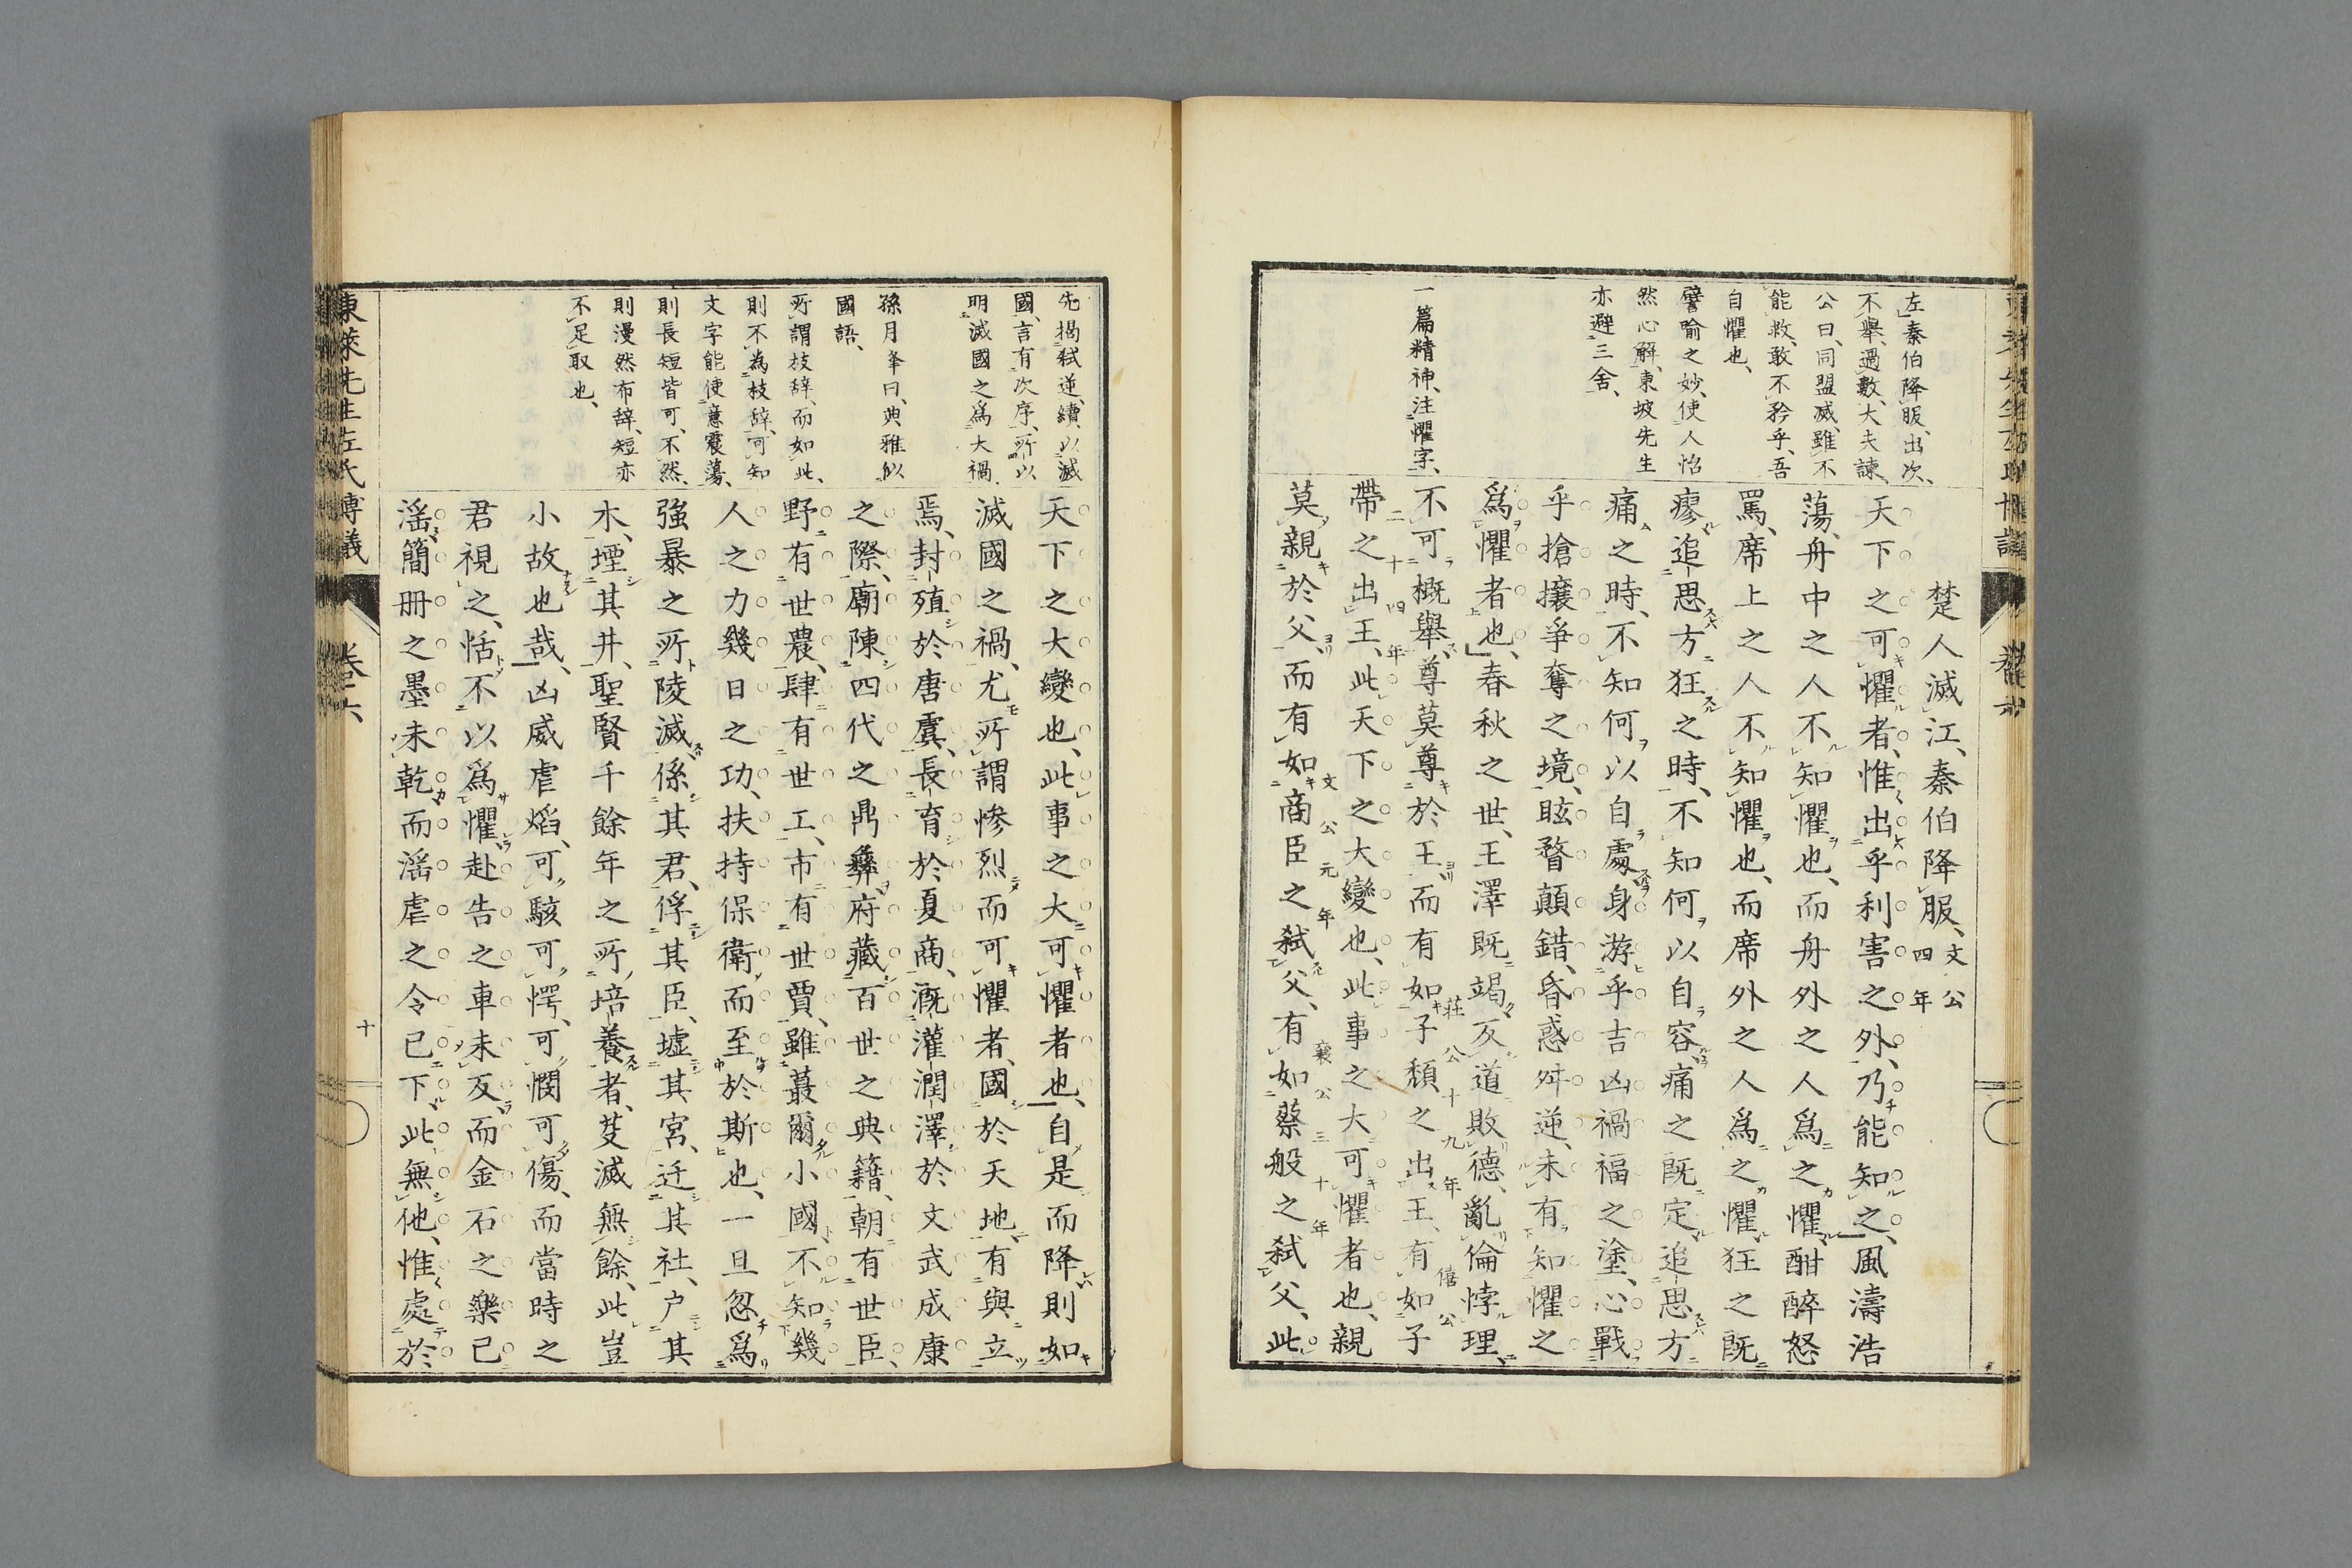 左、秦伯降服、出次、
不擧、過數、大夫諫、
公曰、同盟滅、雖不
能救、敢不矜乎、吾
自懼也、
譬喻之妙、使人怡
然心解、東坡先生
亦避三舍、
一篇精神、注懼字、
楚人滅江、秦伯降服、文公四年
天下之可懼者、惟出乎利害之外、乃能知之、風濤浩
蕩、舟中之人不知懼也、而舟外之人爲之懼、酣醉怒
罵、席上之人不知懼也、而席外之人爲之懼、狂之既
瘳、追思方狂之時、不知何以自容、痛之既定、追思方
痛之時、不知何以自處、身游乎吉凶禍福之塗、心戰
乎搶攘爭奪之境、眩瞀顛錯、昏惑舛逆、未有知懼之
爲懼者也、春秋之世、王澤既竭、反道敗德、亂倫悖理、
不可概擧、尊莫尊於王、而有如子頽之出王、有如子
莊公十九年
僖公
帶之出王、此天下之大變也、此事之大可懼者也、親
二十四年
莫親於父、而有如商臣之弑父、有如蔡般之弑父、此
文公元年
襄公三十年
先揭弑逆、續以滅
國、言有次序、所以
明滅國之爲大禍、
孫月峯曰、典雅似
國語、
所謂枝辞、而如此、
則不為枝辞、可知
文字能使意震蕩、
則長短皆可、不然、
則漫然布辞、短亦
不足取也、
天下之大變也、此事之大可懼者也、自是而降則如
滅國之禍、尤所謂慘烈而可懼者、國於天地、有與立
焉、封殖於唐虞、長育於夏商、漑灌潤澤於文武成康
之際、廟陳四代之鼎彝、府藏百世之典籍、朝有世臣、
野有世農、肆有世工、市有世賈、雖蕞爾小國、不知幾
人之力幾日之功、扶持保衛而至於斯也、一旦忽爲
強暴之所陵滅、係其君、俘其臣、墟其宮、迁其社、户其
木、堙其井、聖賢千餘年之所培養者、芟滅無餘、此豈
小故也哉、凶威虐焰、可駭可愕、可憫可傷、而當時之
君視之、恬不以爲懼、赴告之車未反、而金石之樂已
滛、簡冊之墨未乾、而滛虐之令已下、此無他、惟處於
東萊先生左氏博議
卷六
十